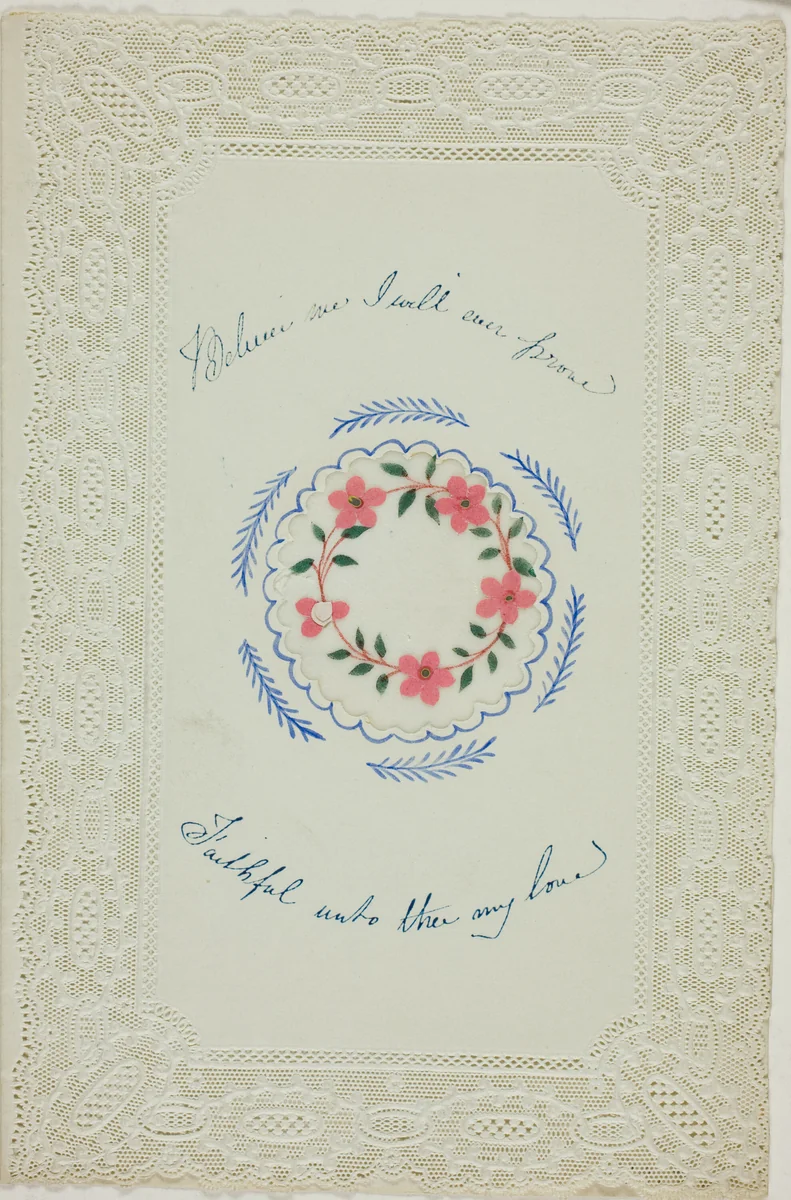 Believe me I will ever prove
Faithful unto thee my love